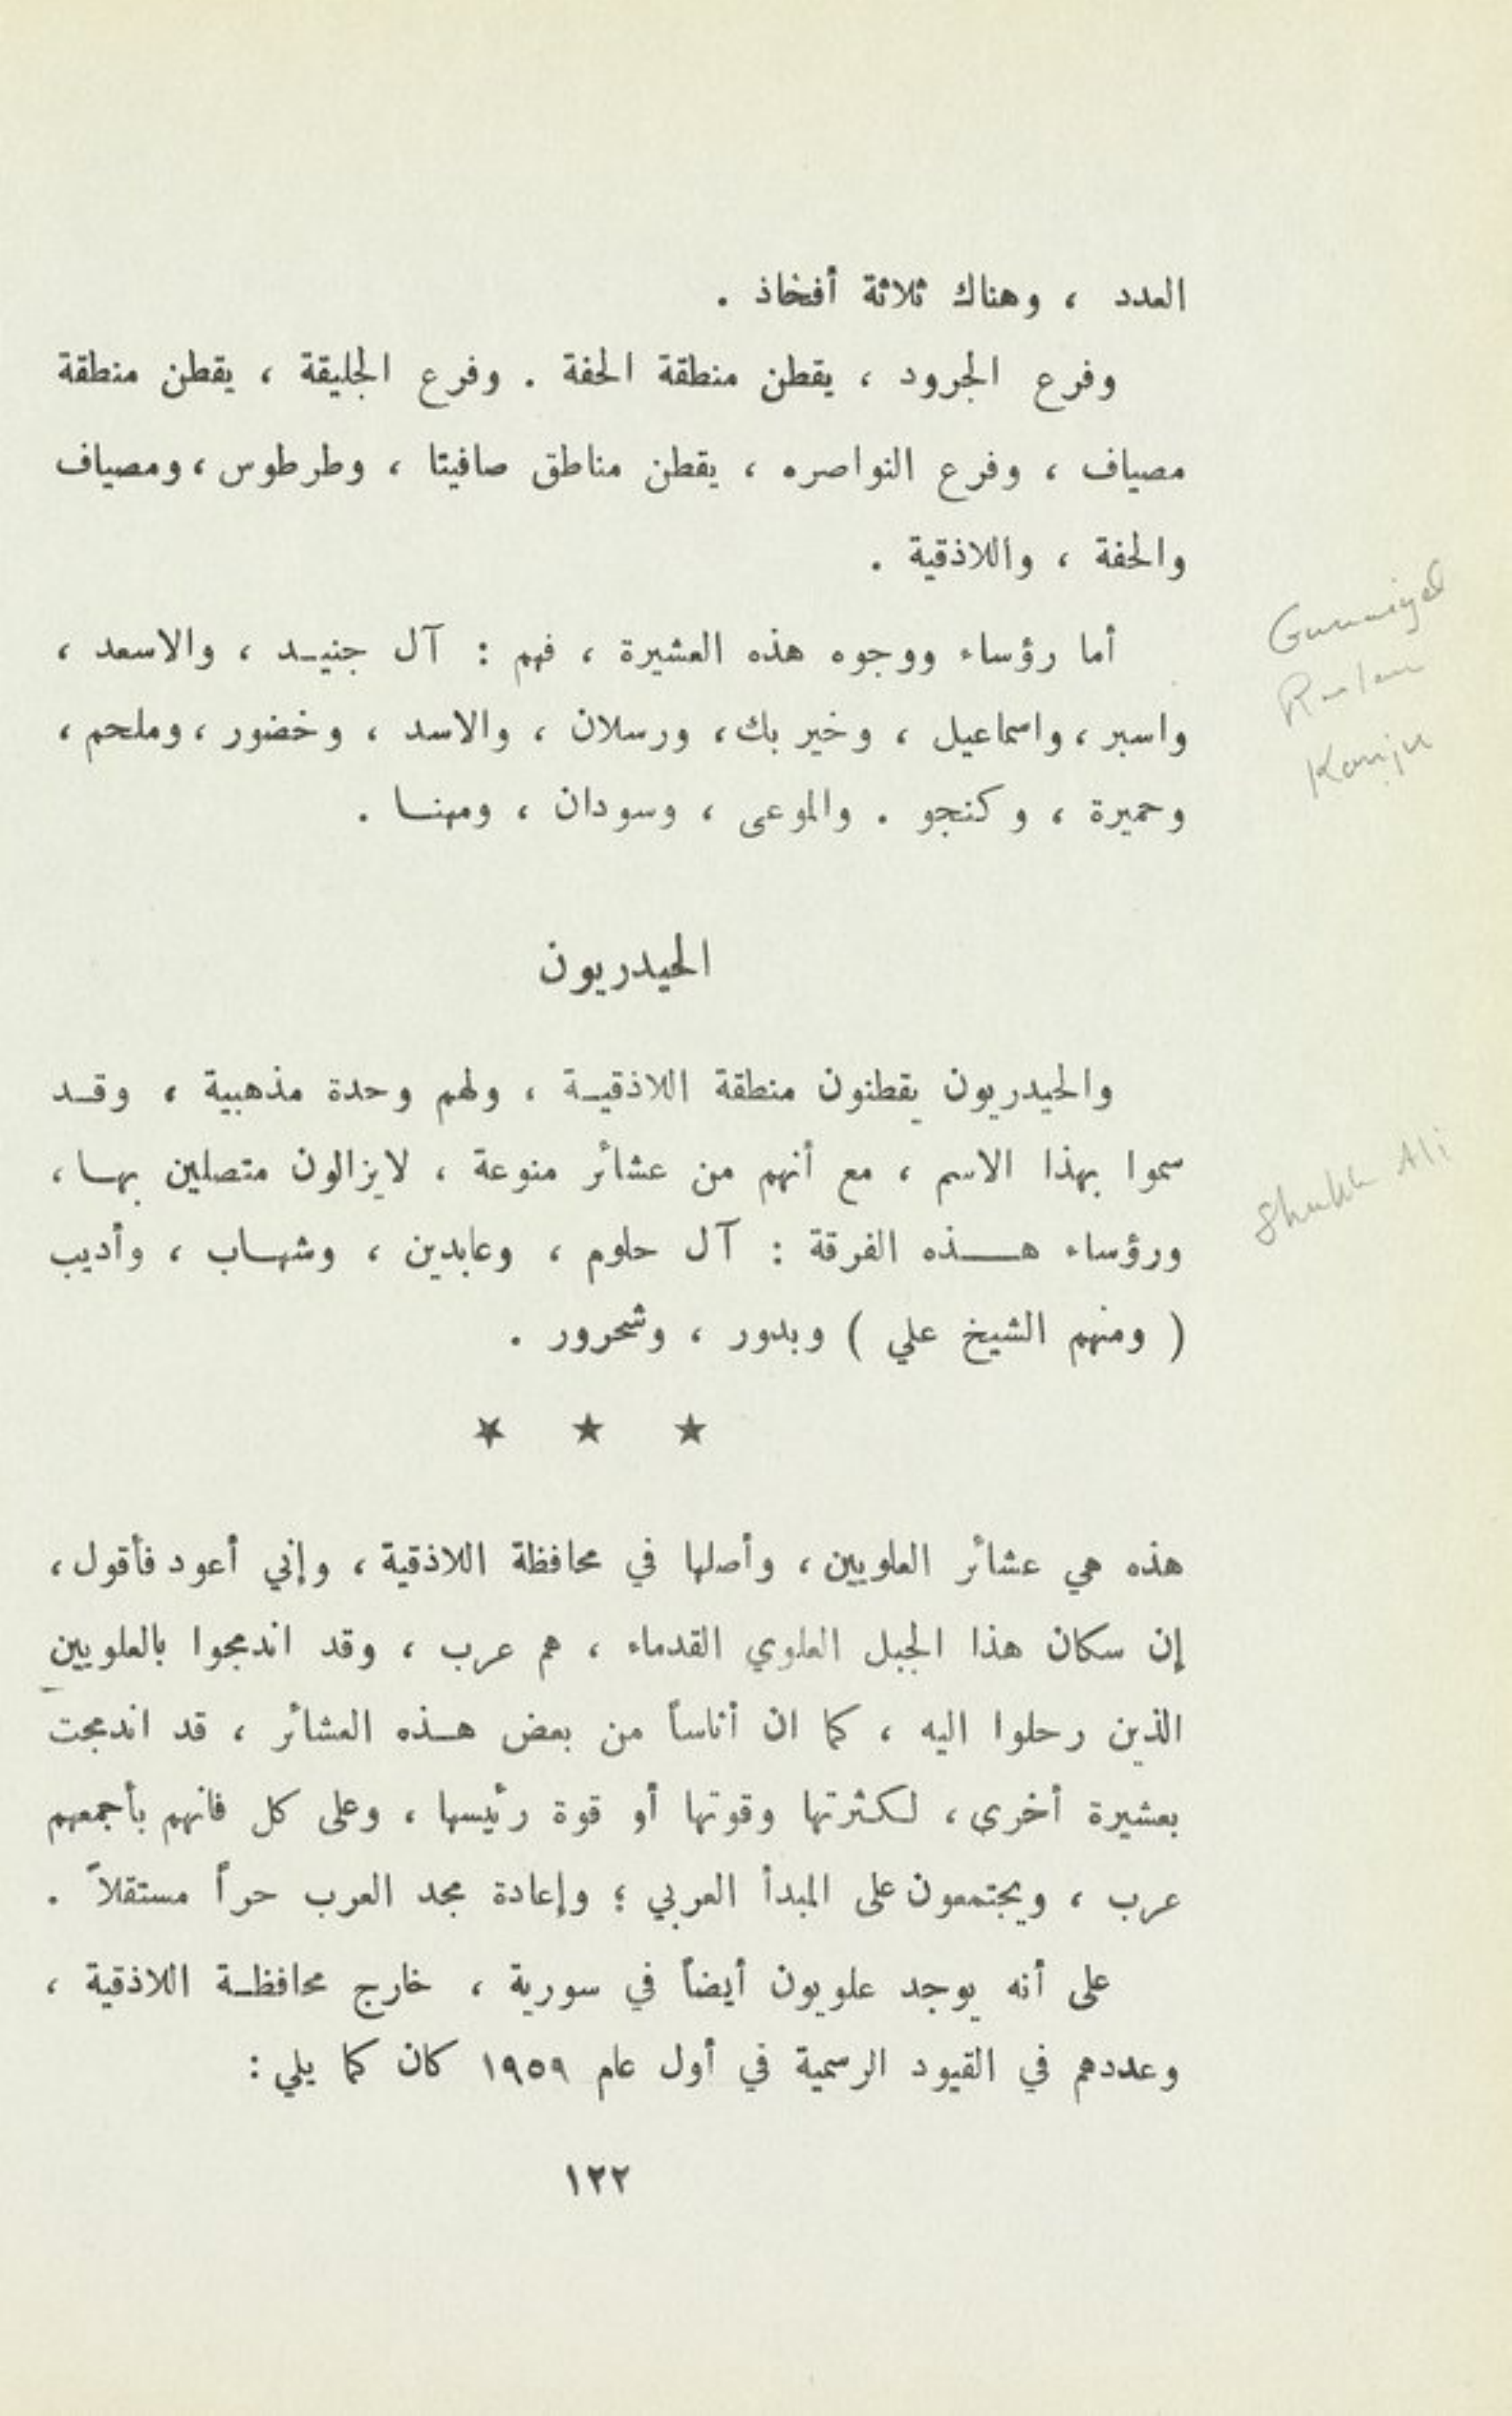 العدد ، وهناك ثلاثة أفخاذ .
وفرع الجرود ، يقطن منطقة الحفة . وفرع الجليقة ، يقطن منطقة
مصياف ، وفرع النواصره ، يقطن مناطق صافيتا ، وطرطوس ، ومصياف
والحفة ، واللاذقية .
أما رؤساء ووجوه هذه العشيرة ، فهم : آل جنيد ، والاسعد ،
واسبر ، واسماعيل ، وخير بك ، ورسلان ، والاسد ، وخضور ، وملحم ،
وحميرة ، وكنجو . والموعى ، وسودان ، ومهنا .
Raslan
Kanju
الحيدريون
والحيدريون يقطنون منطقة اللاذقية ، ولهم وحدة مذهبية ، وقد
سموا بهذا الاسم ، مع أنهم من عشائر منوعة ، لايزالون متصلين بها ،
ورؤساء هذه الفرقة : آل حلوم ، وعابدين ، وشهاب ، وأديب
( ومنهم الشيخ علي ) وبدور ، وشحرور .
Shukh Ali
★ ★ ★
هذه هي عشائر العلويين ، وأصلها في محافظة اللاذقية ، وإني أعود فأقول ،
إن سكان هذا الجبل العلوي القدماء ، هم عرب ، وقد اندمجوا بالعلويين
الذين رحلوا اليه ، كما ان أناساً من بعض هذه العشائر ، قد اندمجت
بعشيرة أخرى ، لكثرتها وقوتها أو قوة رئيسها ، وعلى كل فانهم بأجمعهم
عرب ، ويجتمعون على المبدأ العربي ؛ وإعادة مجد العرب حراً مستقلاً .
على أنه يوجد علويون أيضاً في سورية ، خارج محافظة اللاذقية ،
وعددهم في القيود الرسمية في أول عام ١٩٥٩ كان كما يلي :
١٢٢